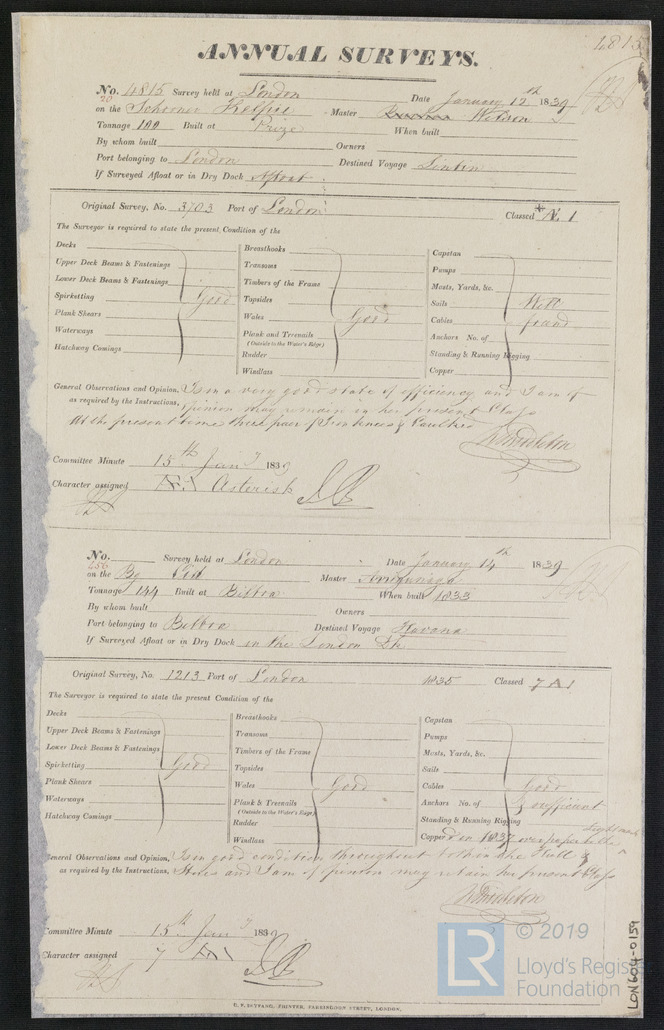 4815
ANNUAL SURVEYS.
No. 4815 Survey held at London Date January 12th 1839
20 on the Schooner Kelpie Master Wilson
Tonnage 100 Built at Prize When built
By whom built Owners
Port belonging to London Destined Voyage
If Surveyed Afloat or in Dry Dock Afloat
Original Survey, No. 3703 Port of London Classed * Æ 1
The Surveyor is required to state the present Condition of the
Decks
Upper Deck Beams & Fastenings
Lower Deck Beams & Fastenings
Spirketting Good
Plank Shears
Waterways
Hatchway Comings
Breasthooks
Transoms
Timbers of the Frame
Topsides
Wales Good
Plank and Treenails
(Outside to the Water's Edge)
Rudder
Windlass
Capstan
Pumps
Masts, Yards, &c.
Sails Well
Cables found
Anchors No. of
Standing & Running Rigging
Copper
General Observations and Opinion, Is in a very good state of efficiency and I am of
as required by the Instructions, opinion may remain in her present Class
At the present time three pair of Caulked
Middleton
Committee Minute 15th Jany 1839
Character assigned Asterisk
No. Survey held at London Date January 14th 1839
256 on the Bg Cid Master
Tonnage 144 Built at Bilboa When built 1833
By whom built Owners
Port belonging to Bilboa Destined Voyage Havana
If Surveyed Afloat or in Dry Dock in the London Dk
Original Survey, No. 1213 Port of London 1835 Classed 7 A 1
The Surveyor is required to state the present Condition of the
Decks
Upper Deck Beams & Fastenings
Lower Deck Beams & Fastenings
Spirketting Good
Plank Shears
Waterways
Hatchway Comings
Breasthooks
Transoms
Timbers of the Frame
Topsides
Wales Good
Plank & Treenails
(Outside to the Water's Edge)
Rudder
Windlass
Capstan
Pumps
Masts, Yards, &c.
Sails
Cables Good
Anchors No. of & sufficient
Standing & Running Rigging
Copper'd in 1837 over paper
General Observations and Opinion, Is in good condition throughout both in the Hull &
as required by the Instructions, Stores and I am of opinion may retain her present Class
Middleton
Committee Minute 15th Jany 1839
Character assigned 7 A 1
LR © 2019
Lloyd's Register
Foundation
LON604-0159